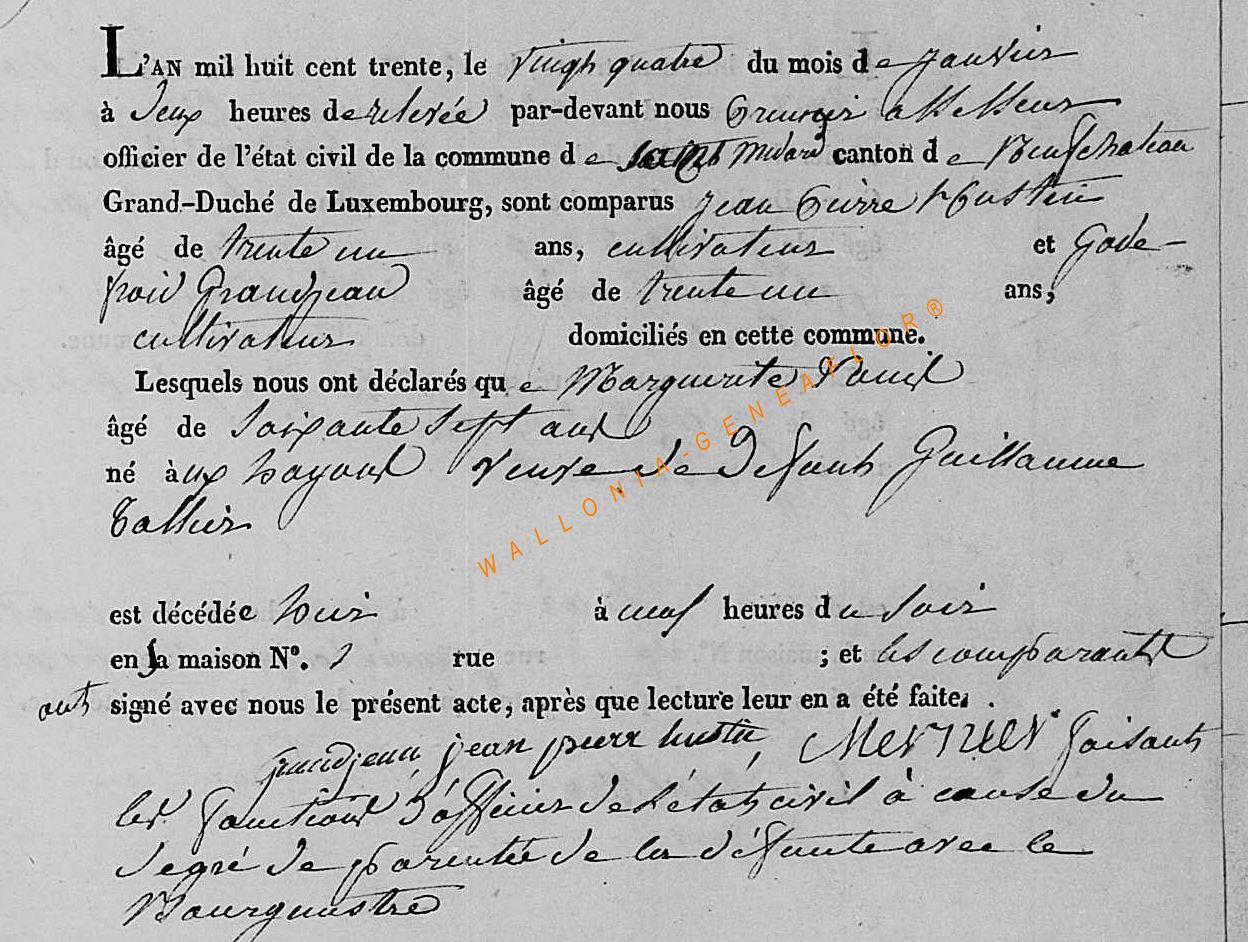 L'AN mil huit cent trente, le vingt quatre du mois de janvier
à deux heures de relevée par-devant nous assesseur
officier de l'état civil de la commune de Saint Medard canton de Neufchateau
Grand-Duché de Luxembourg, sont comparus Jean Pierre hustin
âgé de trente un ans, cultivateur et Gode-
froid Grandjean âgé de trente un ans,
cultivateur domiciliés en cette commune.
Lesquels nous ont déclarés que Marguerite
âgé de soixante sept ans
né aux hayons veuve de Defunt Guillaume
est décédée hier à neuf heures du soir
en sa maison N°. rue ; et les comparants
ont signé avec nous le présent acte, après que lecture leur en a été faite.
grandjean jean pierr hustin, Mernier faisant
les fonctions d'officier de l'état civil à cause du
degré de parentée de la défunte avec le
Bourguestre
WALLONIA-GENEALOR®